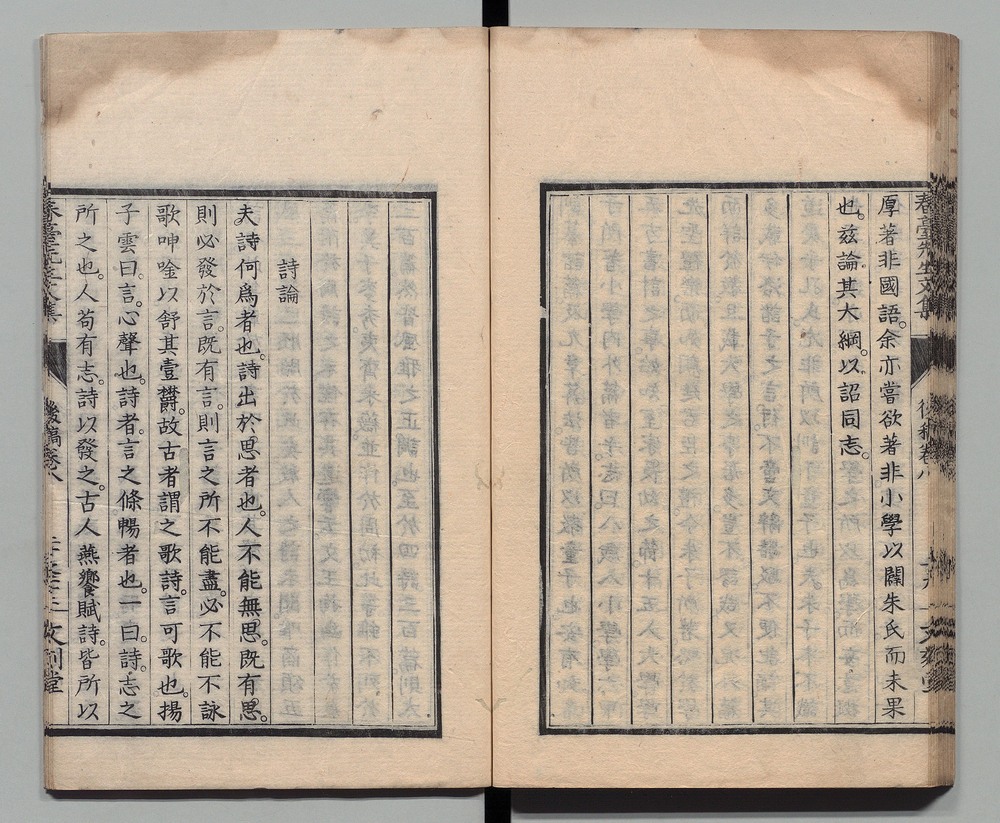 春臺先生文集
後稿卷八
厚著非國語。余亦嘗欲著非小學以闢朱氏而未果
也。兹論其大綱。以詔同志。
詩論
夫詩何爲者也。詩出於思者也。人不能無思。既有思。
則必發於言。既有言。則言之所不能盡。必不能不詠
歌呻唫以舒其壹欝。故古者謂之歌詩。言可歌也。揚
子雲曰。言。心聲也。詩者。言之條暢者也。一曰。詩。志之
所之也。人苟有志。詩以發之。古人燕饗賦詩。皆所以
春臺先生文集
後稿卷八